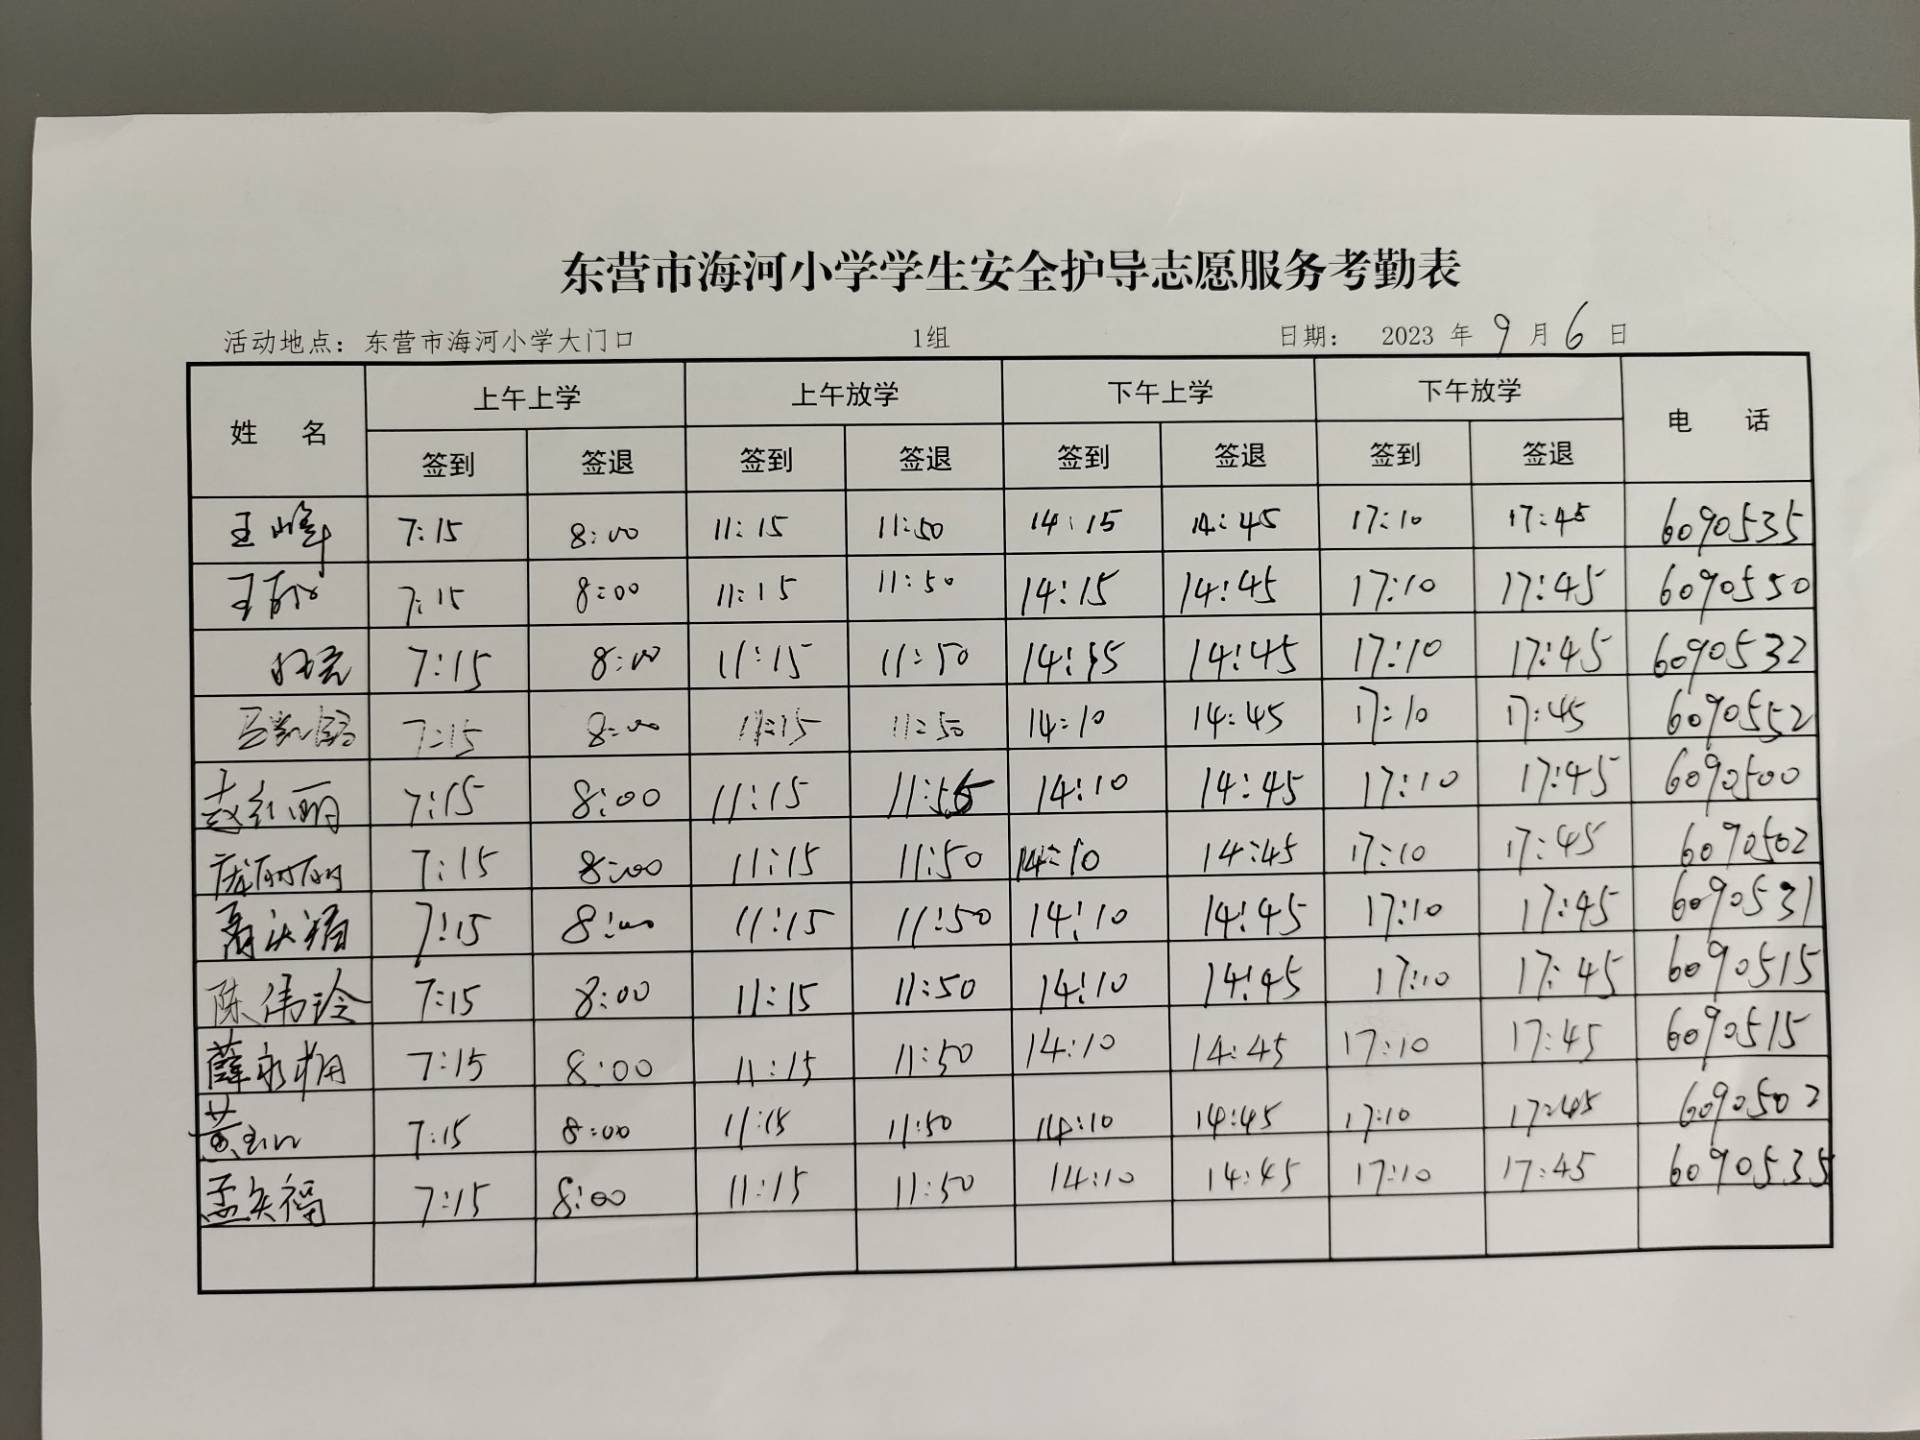 东营市海河小学学生安全护导志愿服务考勤表
活动地点：东营市海河小学大门口 1组 日期： 2023 年 9 月 6 日
姓 名 上午上学 上午放学 下午上学 下午放学 电 话
签到 签退 签到 签退 签到 签退 签到 签退
王峰 7:15 8:00 11:15 11:50 14:15 14:45 17:10 17:45 6090535
王 7:15 8:00 11:15 11:50 14:15 14:45 17:10 17:45 6090550
7:15 8:00 11:15 11:50 14:15 14:45 17:10 17:45 6090532
7:15 8:00 11:15 11:50 14:10 14:45 17:10 17:45 6090552
赵红丽 7:15 8:00 11:15 14:10 14:45 17:10 17:45 6090500
庞丽丽 7:15 8:00 11:15 11:50 14:10 14:45 17:10 17:45 6090502
7:15 8:00 11:15 11:50 14:10 14:45 17:10 17:45 6090531
陈伟玲 7:15 8:00 11:15 11:50 14:10 14:45 17:10 17:45 6090515
薛永翔 7:15 8:00 11:15 11:50 14:10 14:45 17:10 17:45 6090515
黄 7:15 8:00 11:15 11:50 14:10 14:45 17:10 17:45 6090502
孟 福 7:15 8:00 11:15 11:50 14:10 14:45 17:10 17:45 6090535